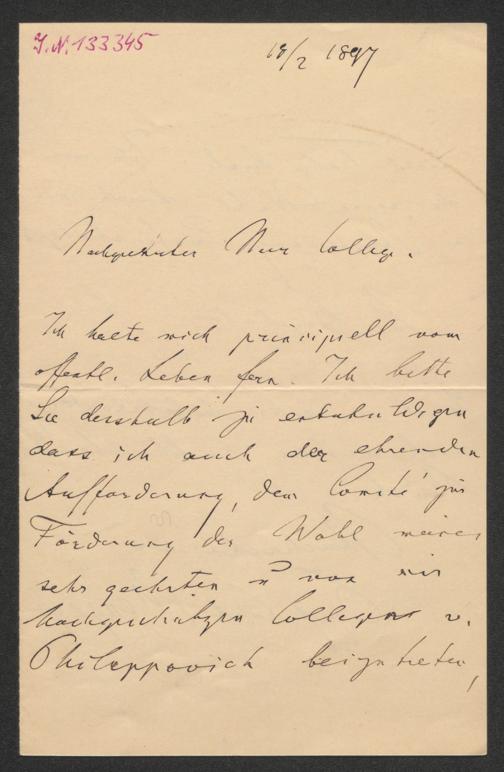 J.N. 133345
18/2 1897
Hochgeehrter Herr College.
Ich halte mich principiell vom
öffentl. Leben fern. Ich bitte
Sie desshalb zu entschuldigen
dass ich auch der ehrenden
Aufforderung, dem Comité zur
Förderung der Wahl meines
sehr geehrten u von mir
hochgeschätzten Collegen v.
Philippovich beizutreten,